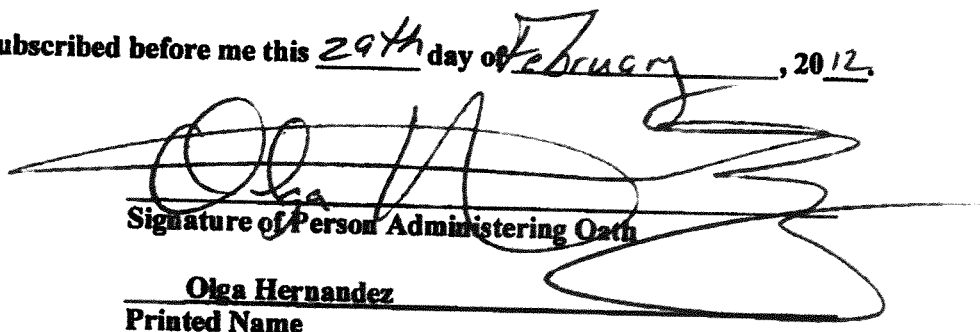 ubscribed before me this 29th day of February, 2012.
Olga H
Signature of Person Administering Oath
Olga Hernandez
Printed Name